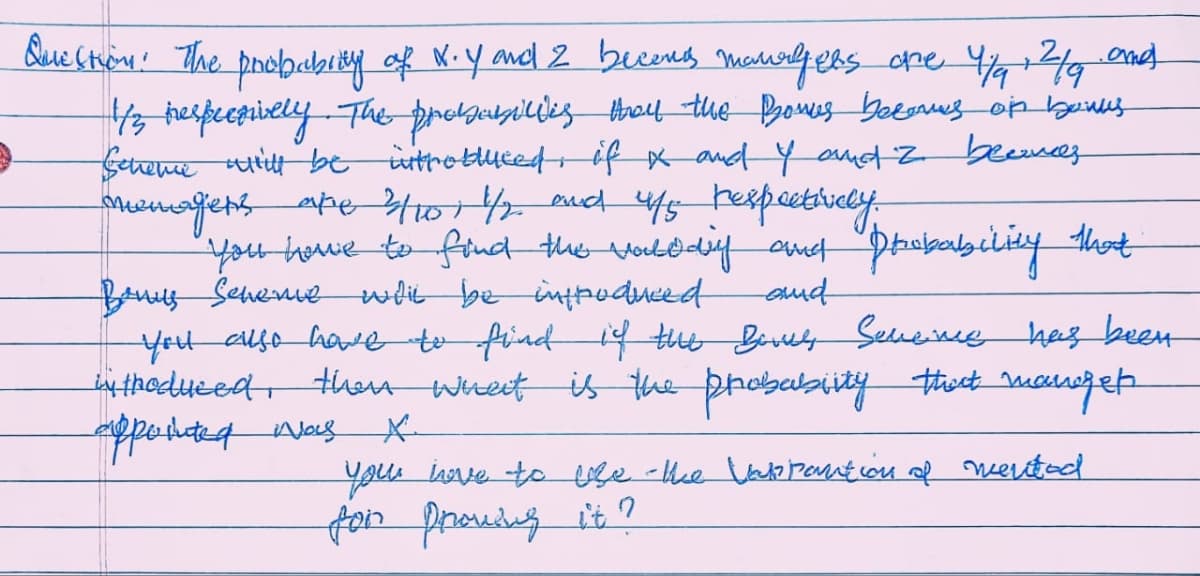 Question: The probability of X.Y and Z becomes managers are 4/9, 2/9 and
1/3 respectively. The probabilities that the Bonus becomes or bonus
Scheme will be introduced, if X and Y and Z becomes
managers are 3/10, 1/2 and 4/5 respectively.
You have to find the and probability that
Bonus Scheme will be introduced and
you also have to find if the Bonus Scheme has been
introduced, then what is the probability that manager
appointed was X.
you have to use the of method
for proving it?